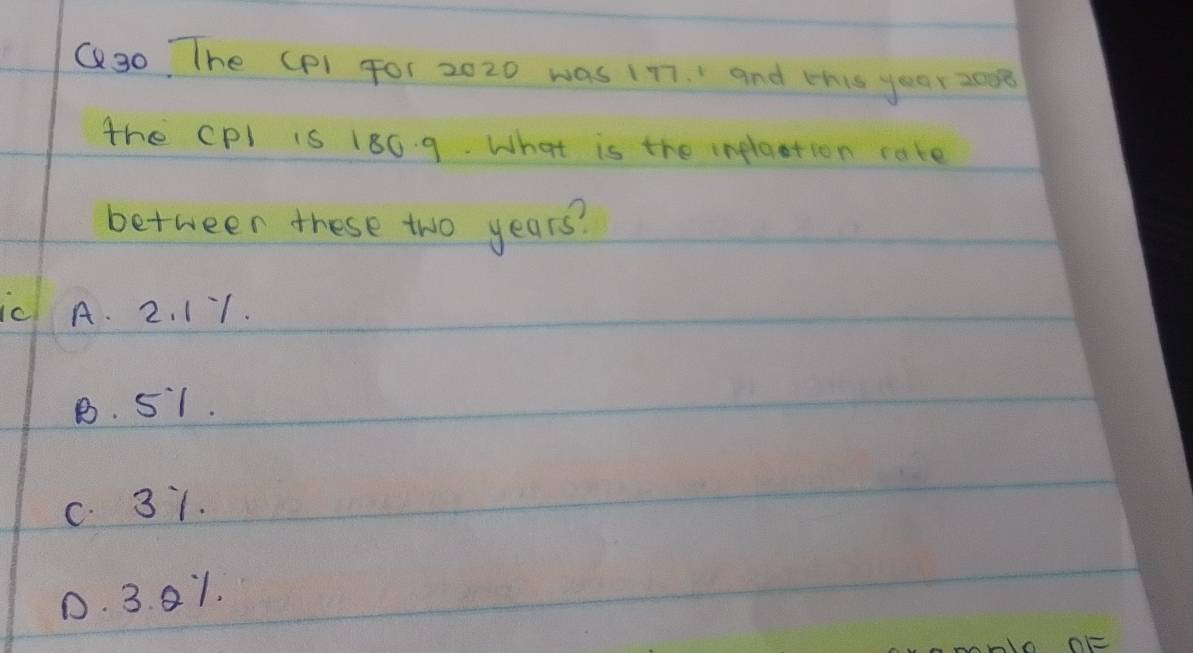 Q30. The CPI for 2020 was 177.1 and this year 2008
the CPI is 180.9. What is the inflaction rate
between these two years?
ic A. 2.1%.
B. 5%.
C. 3%.
D. 3.2%.
example OF